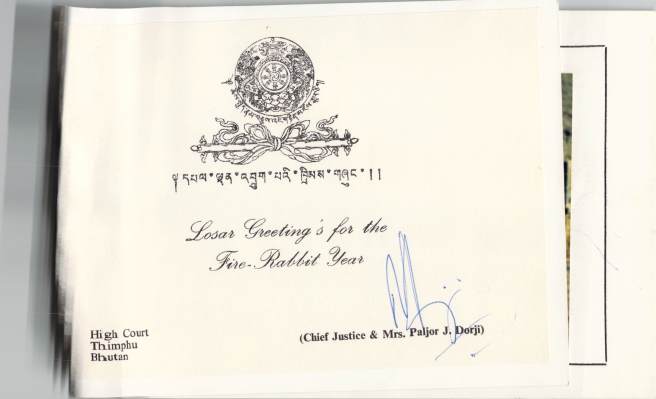 ༄ དཔལ་ལྡན་འབྲུག་པའི་ཁྲིམས་གཞུང་།།
Losar Greeting's for the
Fire-Rabbit Year
High Court
Thimphu
Bhutan
(Chief Justice & Mrs. Paljor J. Dorji)